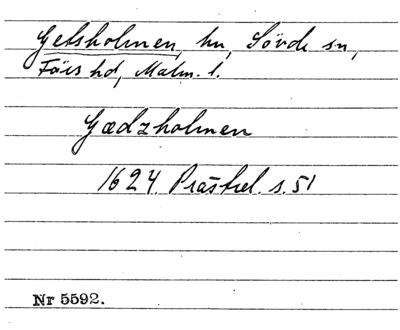 Getsholmen, hn, Sövde sn,
Färs hd, Malm. l.
Gædzholmen
1624 Prästrel. s. 51
Nr 5592.